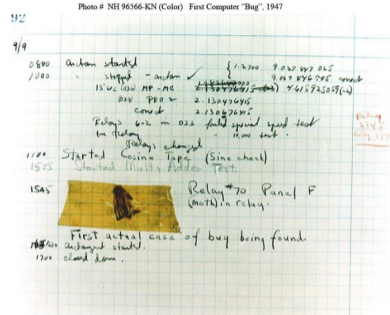 Photo # NH 96566-KN (Color) First Computer "Bug", 1947
92
9/9
0800 Antan started
1000 " stopped - antan ✓
{ 1.2700 9.037 847 025
9.037 846 995 correct
13"uc (032) MP - MC 4.615925059(-2)
(033) PRO 2 2.130476415
correct 2.130676415
Relays 6-2 in 033 failed special speed test
in relay
Relays changed
1100 Started Cosine Tape (Sine check)
1525 Started Mult+ Adder Test.
1545 Relay #70 Panel F
(moth) in relay.
First actual case of bug being found.
antangent started.
1700 closed down.